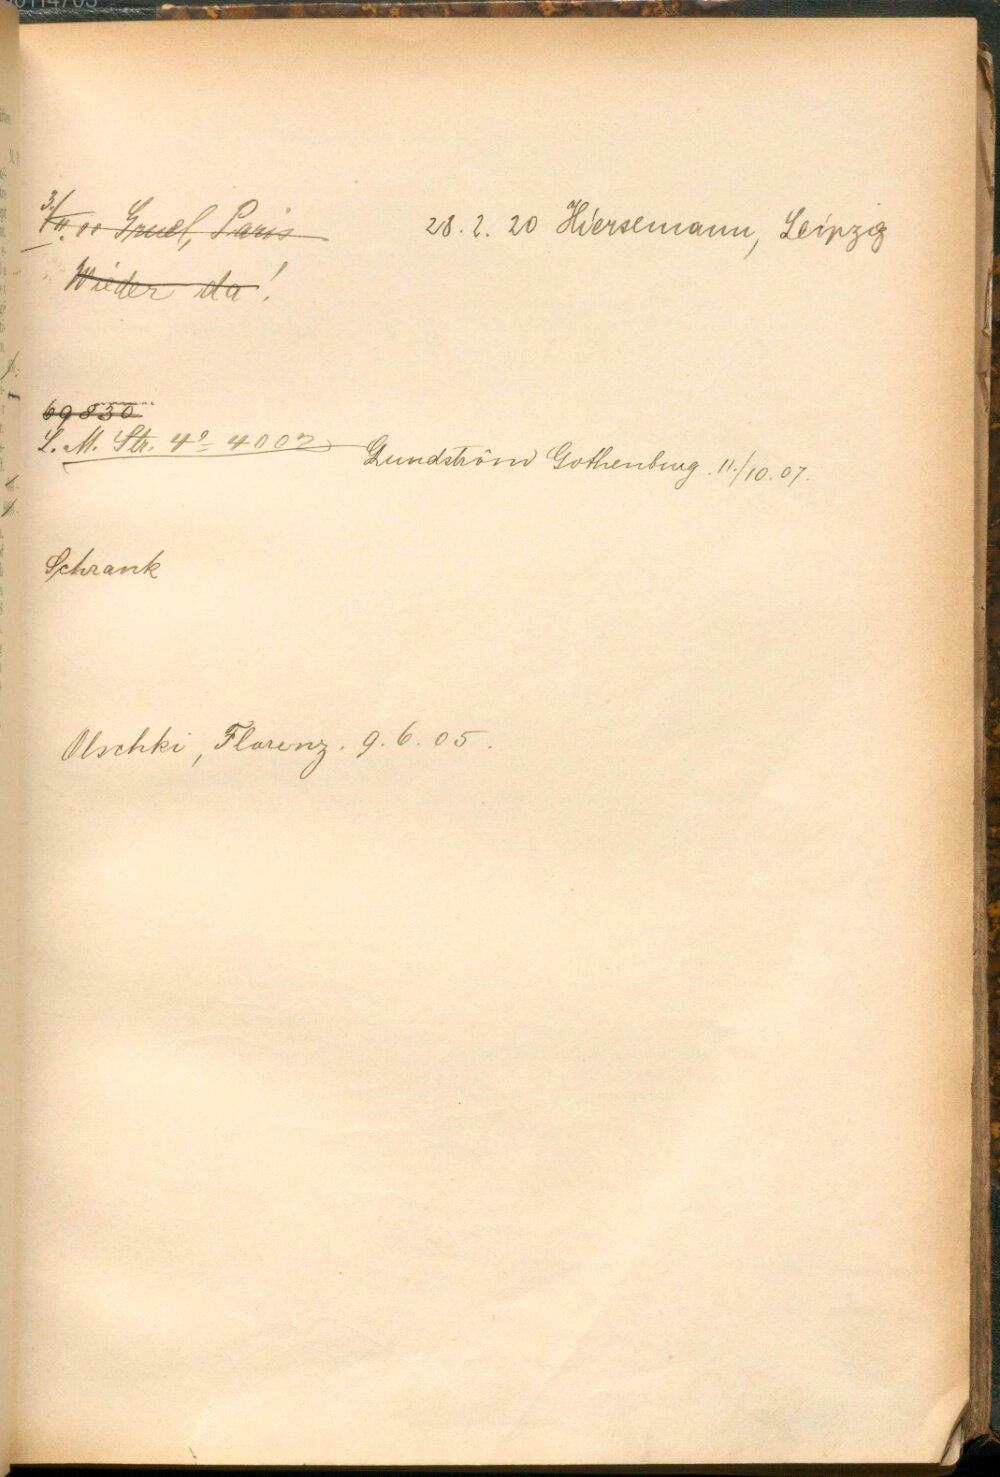 3./VII. 01 Gruel, Paris
28. 2. 20 Hiersemann, Leipzig
Wieder da!
69830
L. M. Str. 4º 4002
Lundström Gothenburg. 11./10. 07.
Schrank
Olschki, Florenz. 9. 6. 05.